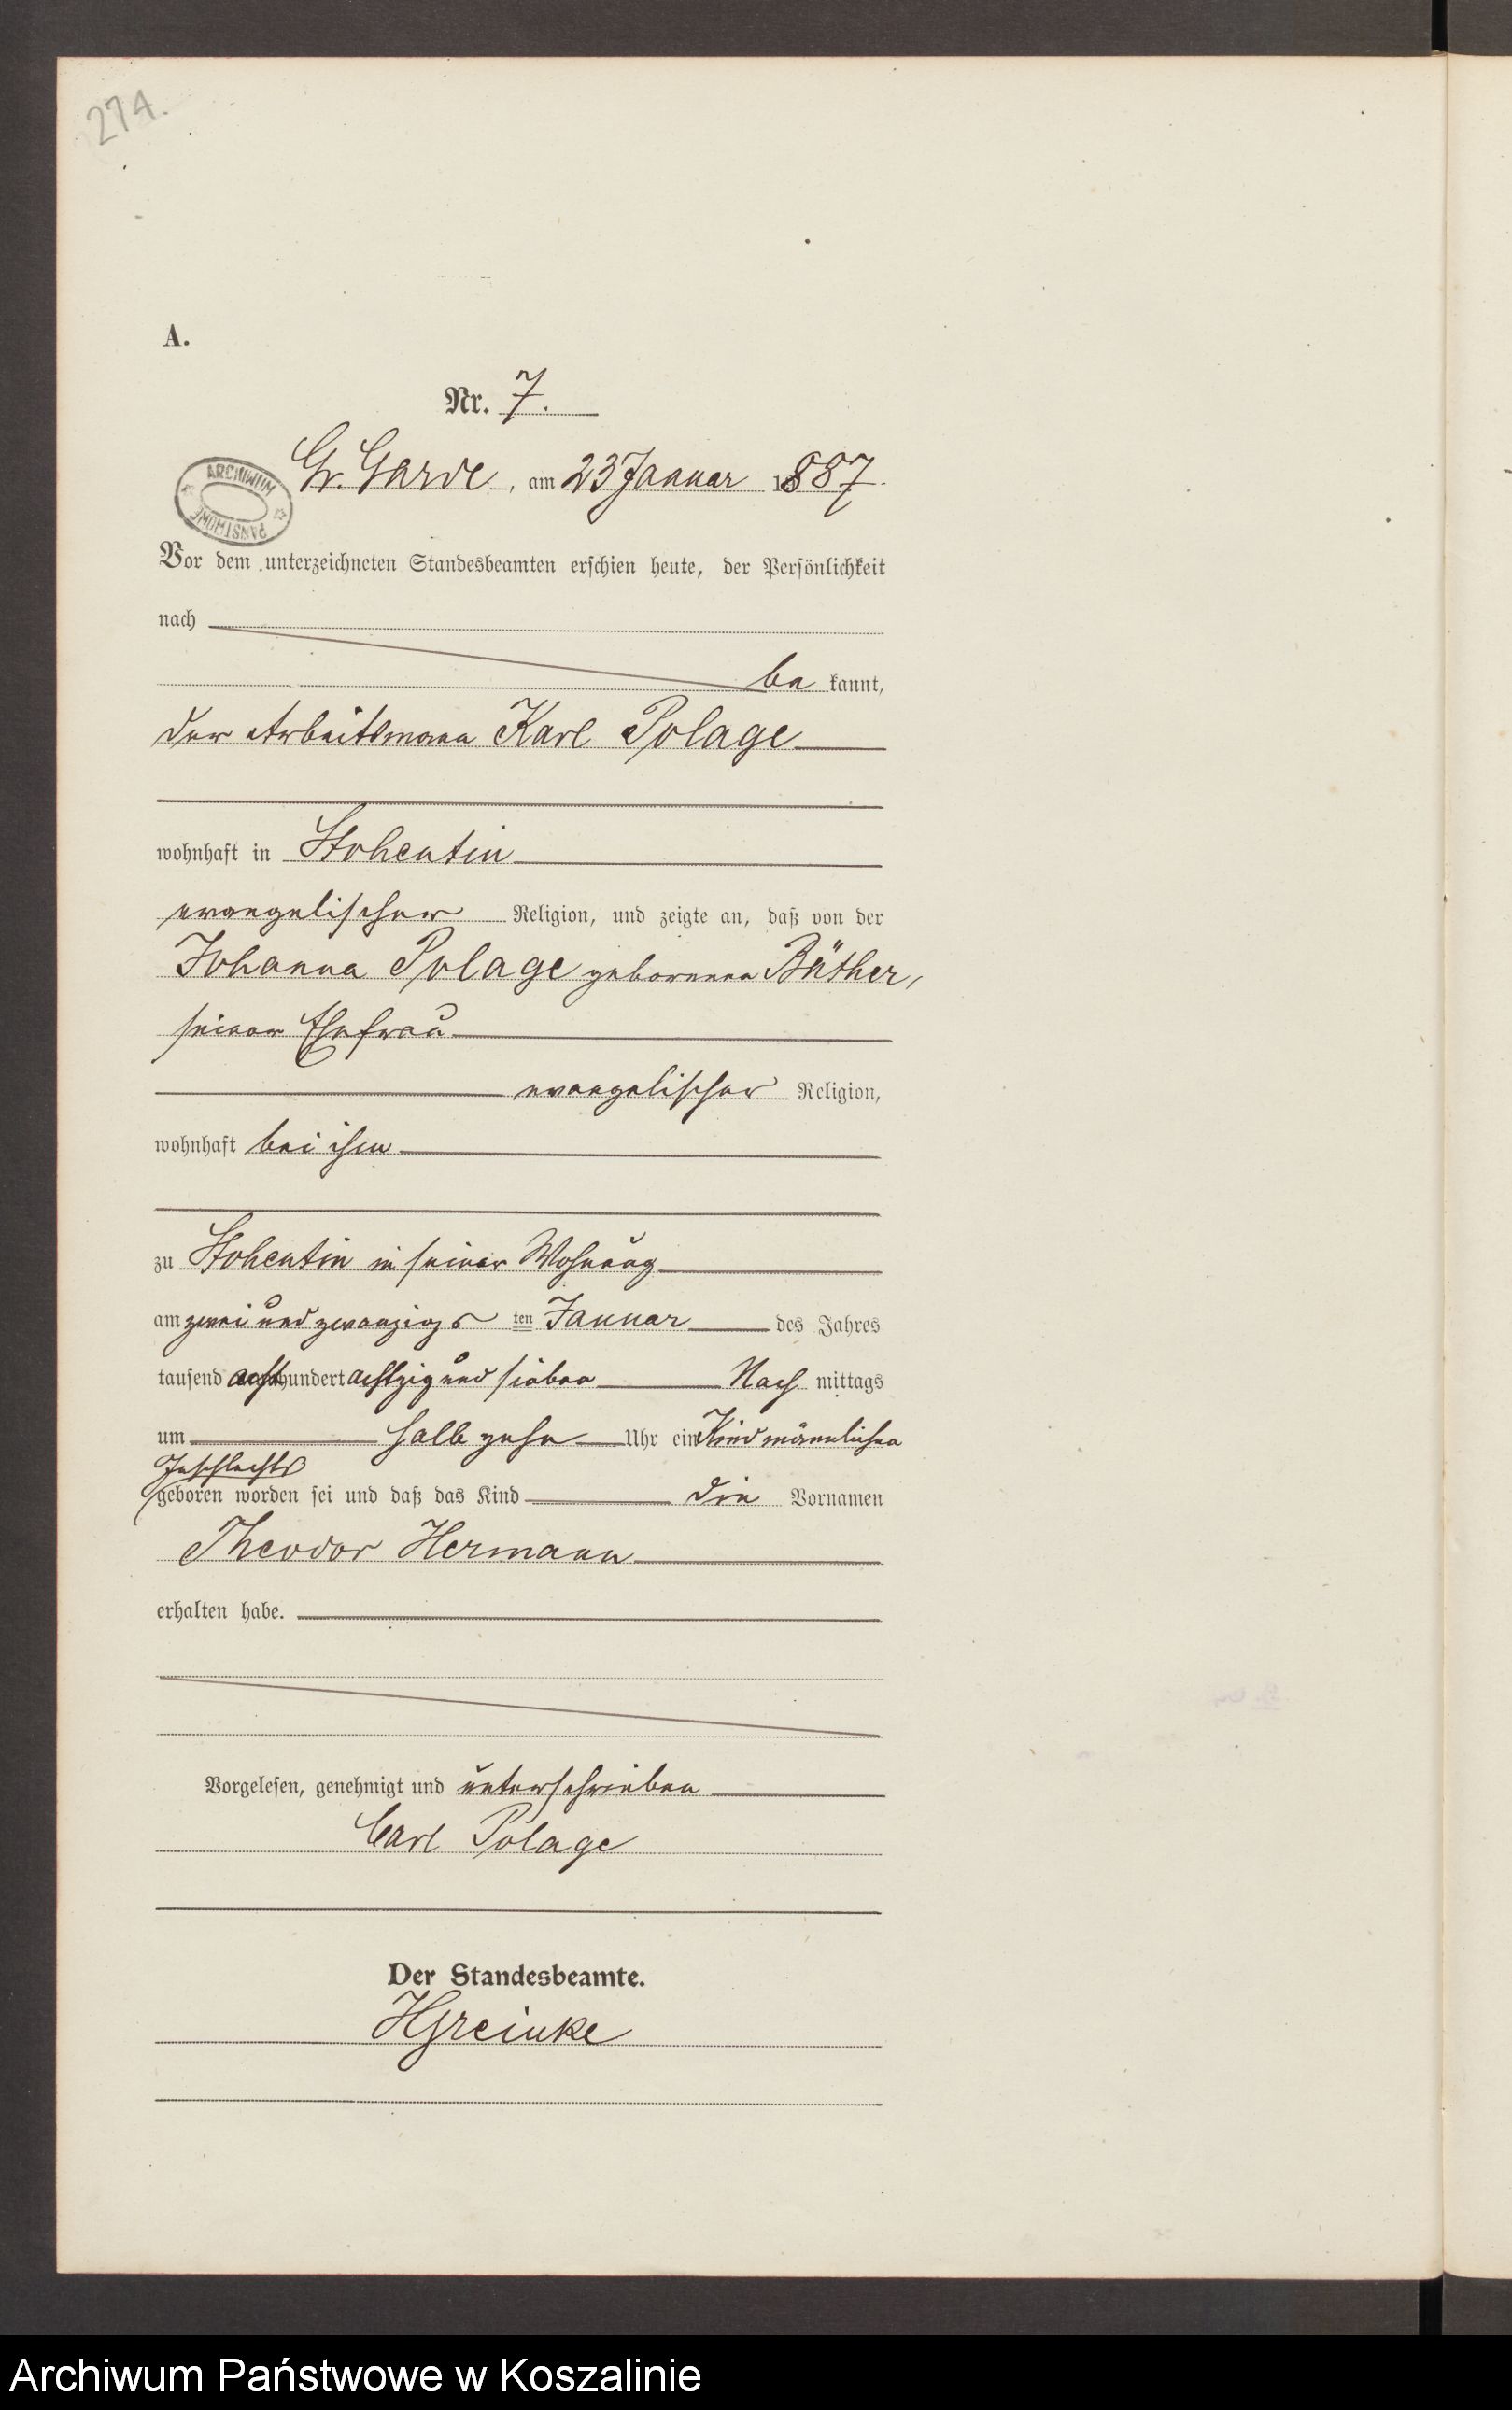 274.
A.
Nr. 7.
ARCHIWUM PAŃSTWOWE
Gr. Garde, am 23 Januar 1887.
Vor dem unterzeichneten Standesbeamten erschien heute, der Persönlichkeit
nach
be kannt,
der Arbeitsmann Karl Polage
wohnhaft in Stohentin
evangelischer Religion, und zeigte an, daß von der
Johanna Polage geborenen Bäther,
seiner Ehefrau
evangelischer Religion,
wohnhaft bei ihm
zu Stohentin in seiner Wohnung
am zwei und zwanzigsten Januar des Jahres
tausend achthundert achtzig und sieben Nach mittags
um halb zehn Uhr ein Kind männlichen
Geschlechts
geboren worden sei und daß das Kind die Vornamen
Theodor Hermann
erhalten habe.
Vorgelesen, genehmigt und unterschrieben
Carl Polage
Der Standesbeamte.
HGreinke
Archiwum Państwowe w Koszalinie